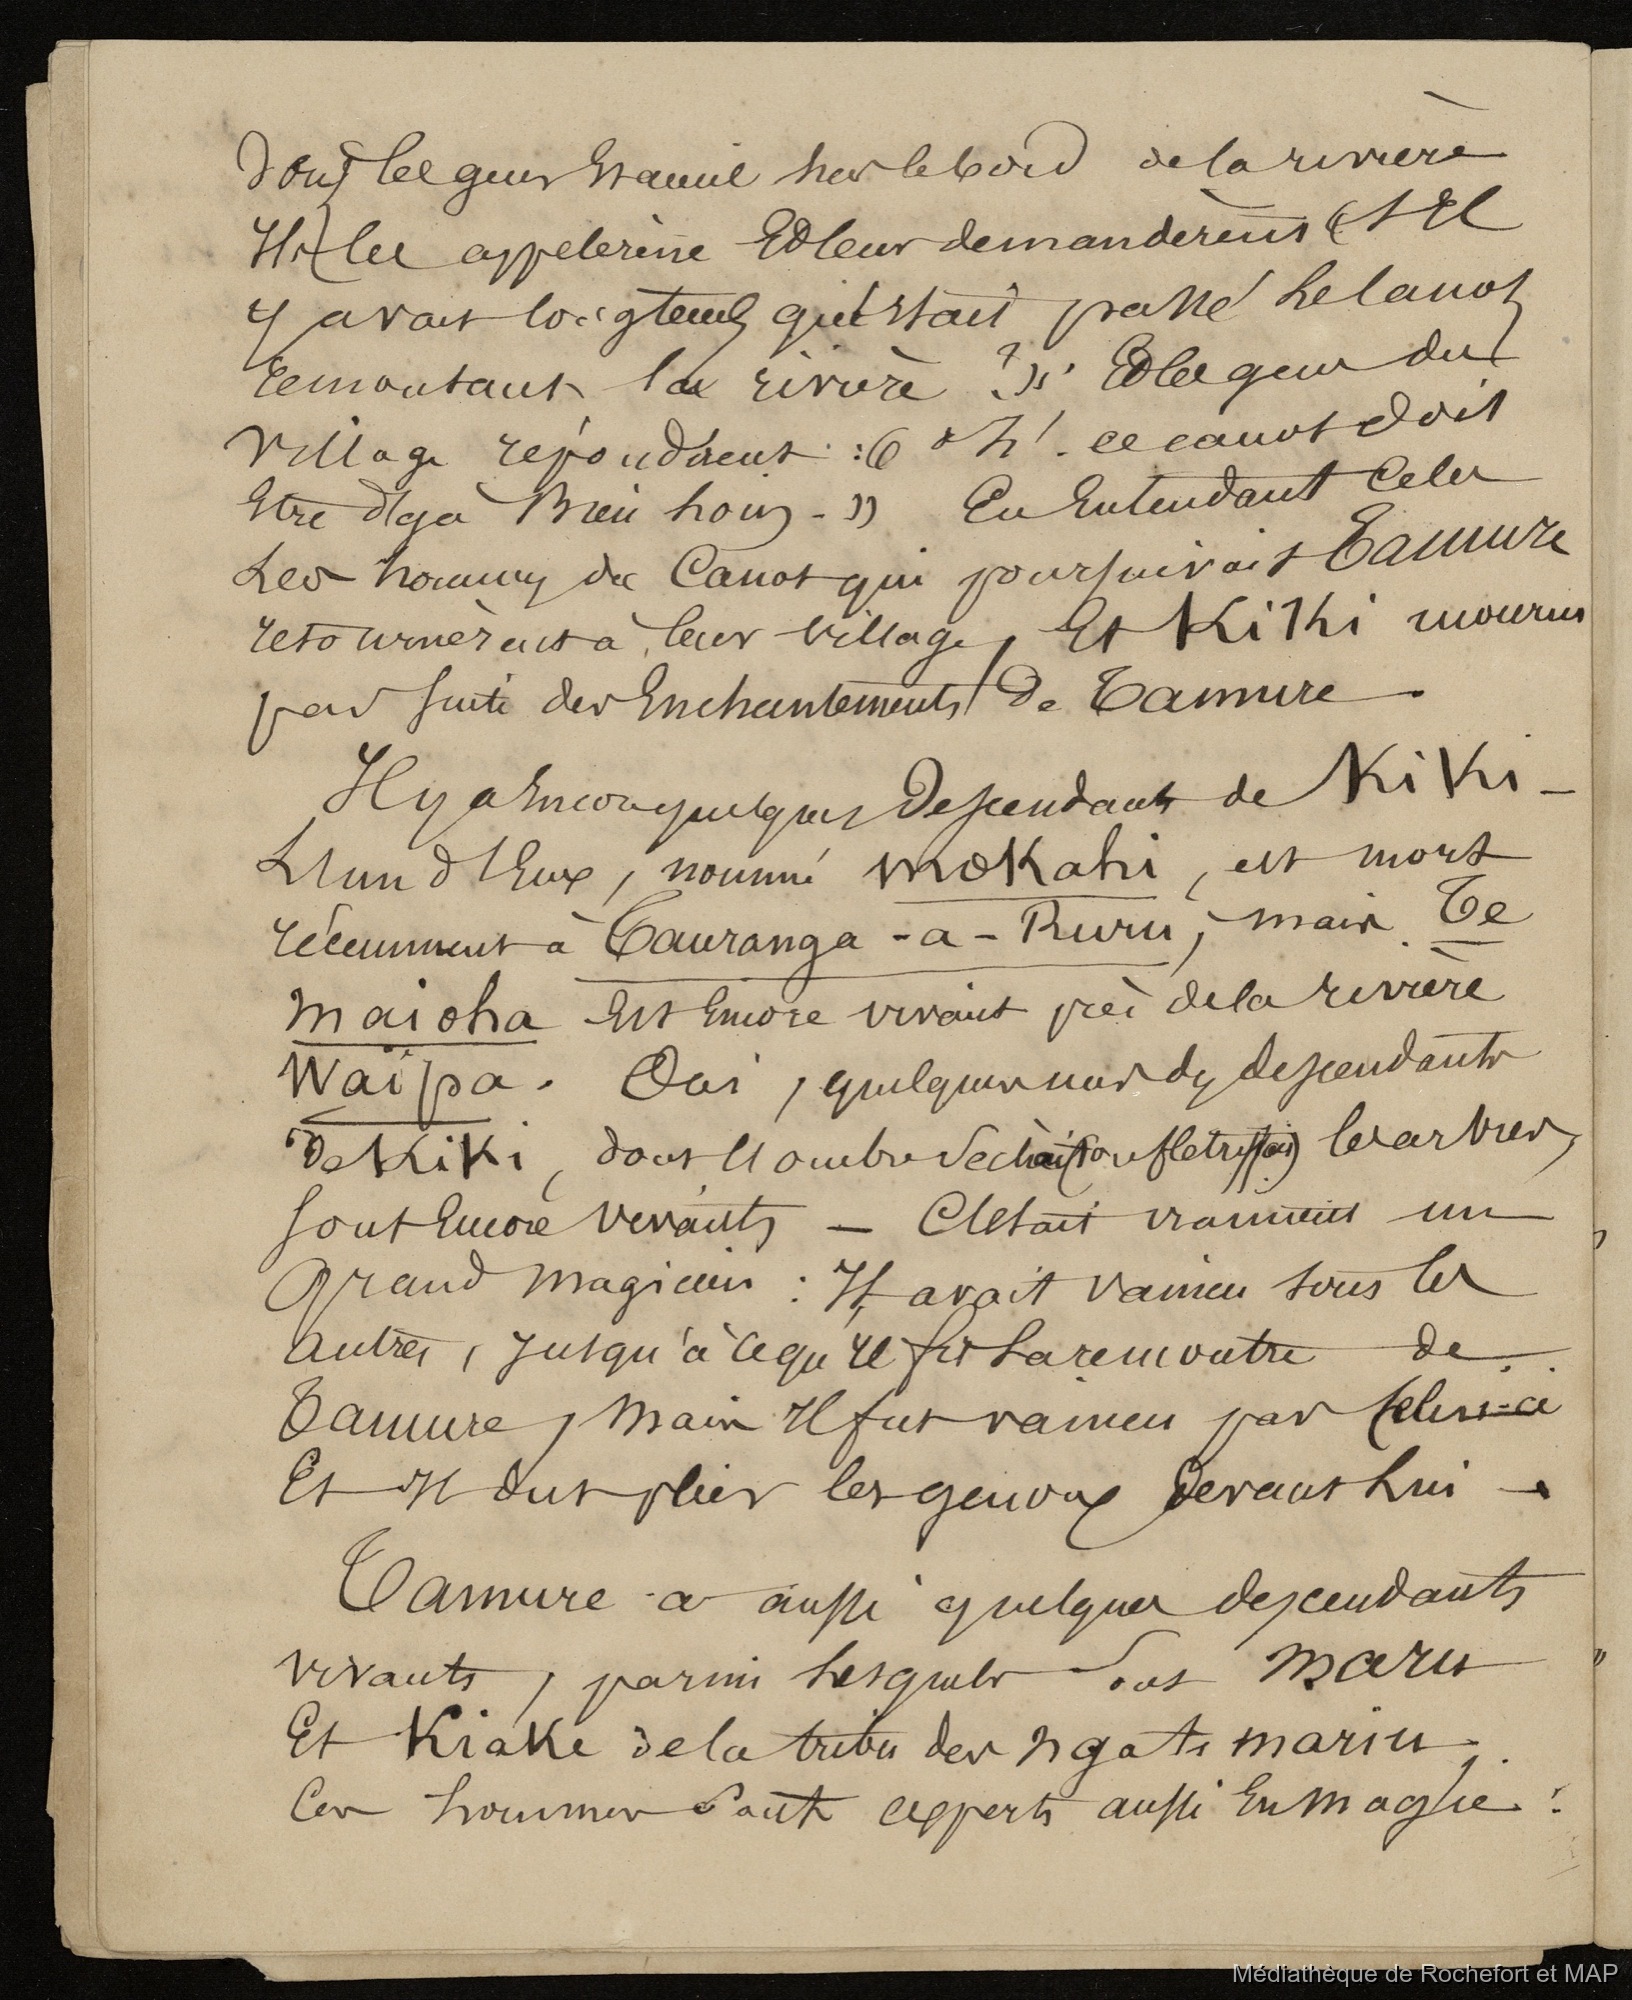 dont les gens étaient sur le bord de la rivière
Ils les appelèrent Et leur demandèrent (s'Il
y avait longtemps qu'était passé le canot
remontant la rivière ? » Et les gens du
village répondirent : « oh ! ce canot doit
Être déjà Bien loin - » En Entendant Cela
Les hommes du Canot qui poursuivait Tamure
retournèrent à leur village, Et KiKi mourut
par suite des Enchantements de Tamure.
Il y a Encore quelques Descendants de KiKi -
L'un d'Eux, nommé moKahi, est mort
récemment à Tauranga - a - Ruru, mais Te
maioha Est Encore vivant près de la rivière
Waïpa. Oui, quelques uns des descendants
de KiKi, dont l'ombre séchait (ou flétrissait) les arbres,
sont Encore vivants — C'Etait vraiment un
grand magicien : Il avait vaincu tous les
autres, jusqu'à ce qu'Il fit la rencontre de
Tamure, mais Il fut vaincu par celui-ci
Et Il dut plier les genoux devant Lui -
Tamure a aussi quelques descendants
vivants, parmi lesquels sont maru
Et KiaKe de la tribu des ngati mariu
Ces hommes sont experts aussi En magie :
Médiathèque de Rochefort et MAP